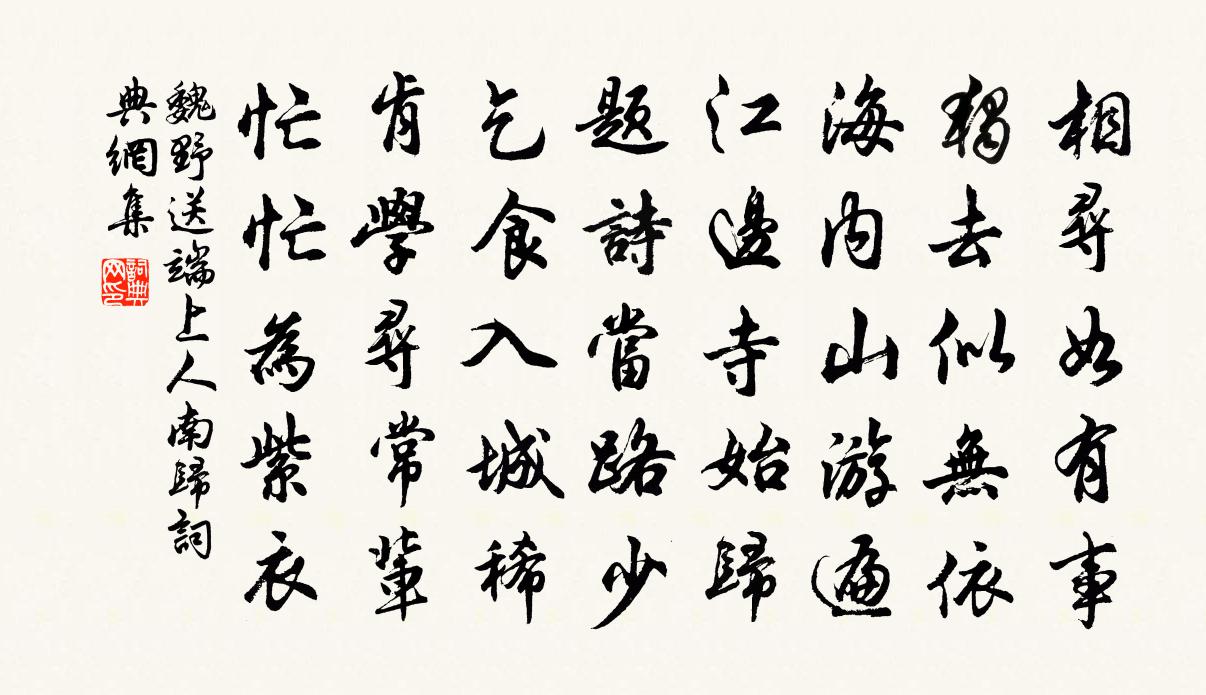 相尋如有事
獨去似無依
海內山游遍
江邊寺始歸
題詩當路少
乞食入城稀
肯學尋常輩
忙忙為紫衣
魏野送端上人南歸詞
典網集
詞典
网印